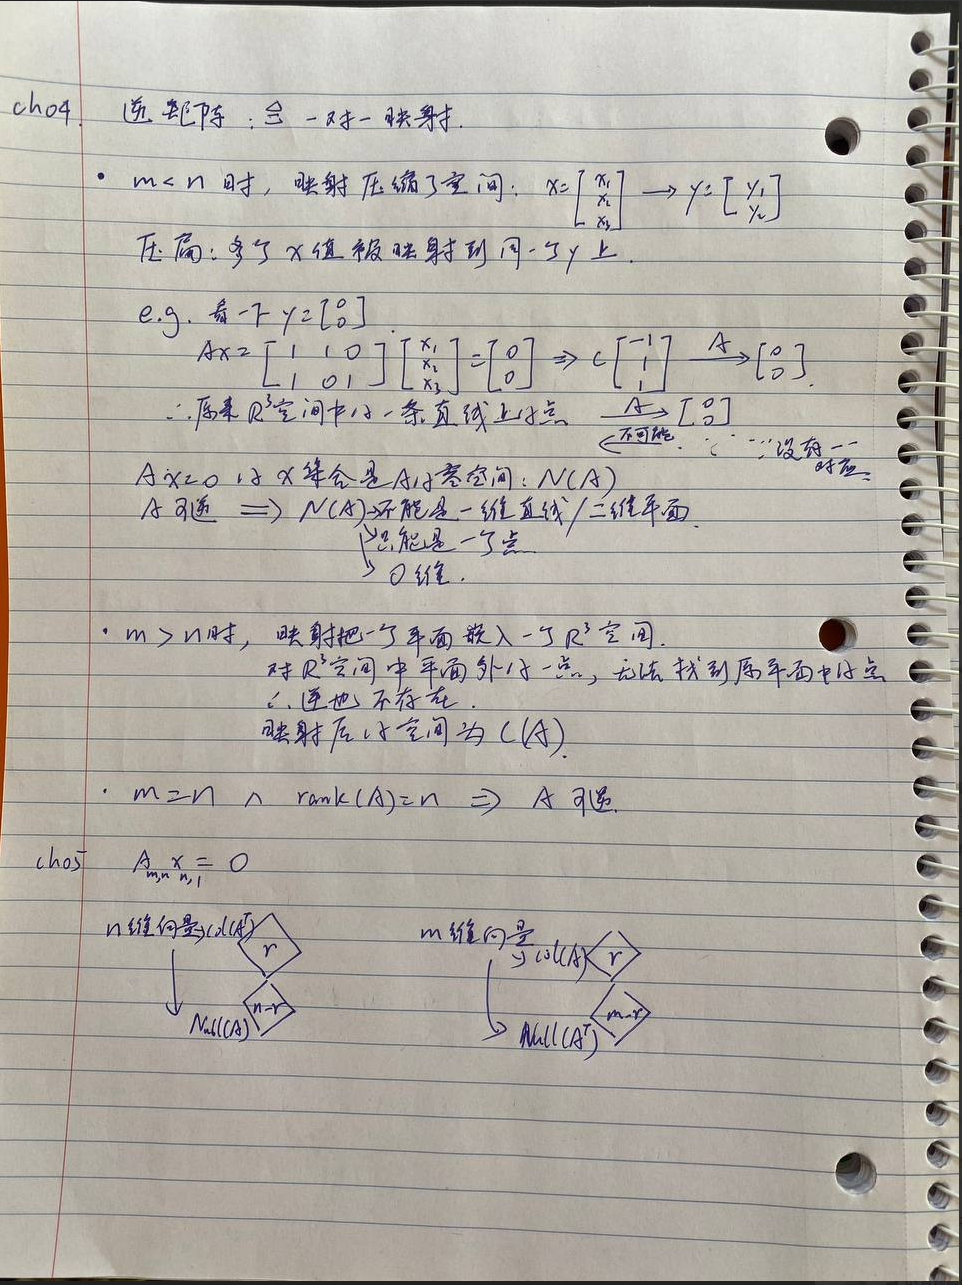 ch04. 逆矩阵: ≙ 一对一映射.
• m < n 时, 映射压缩了空间: x = [x₁ x₂ x₃] → y = [y₁ y₂]
压扁: 多个 x 值被映射到同一个 y 上.
e.g. 看一下 y = [0 0].
Ax = [1 1 0; 1 0 1] [x₁ x₂ x₃] = [0 0] ⇒ c [-1 1 1] A→ [0 0].
∴ 原来 R³ 空间中的一条直线上的点 A→ [0 0]
← 不可能 ∵ 没有一一对应
Ax = 0 的 x 集合是 A 的零空间: N(A)
A 可逆 ⇒ N(A) → 不能是一维直线 / 二维平面.
↘ 只能是一个点
↘ 0 维.
• m > n 时, 映射把一个平面嵌入一个 R³ 空间.
对 R³ 空间中平面外的一点, 无法找到原平面中的点
∴ 逆也不存在.
映射后的空间为 C(A).
• m = n ∧ rank(A) = n ⇒ A 可逆.
ch05 A x = 0
m,n n,1
n 维向量 → col(Aᵀ) r
Null(A) n-r
m 维向量 → col(A) r
Null(Aᵀ) m-r